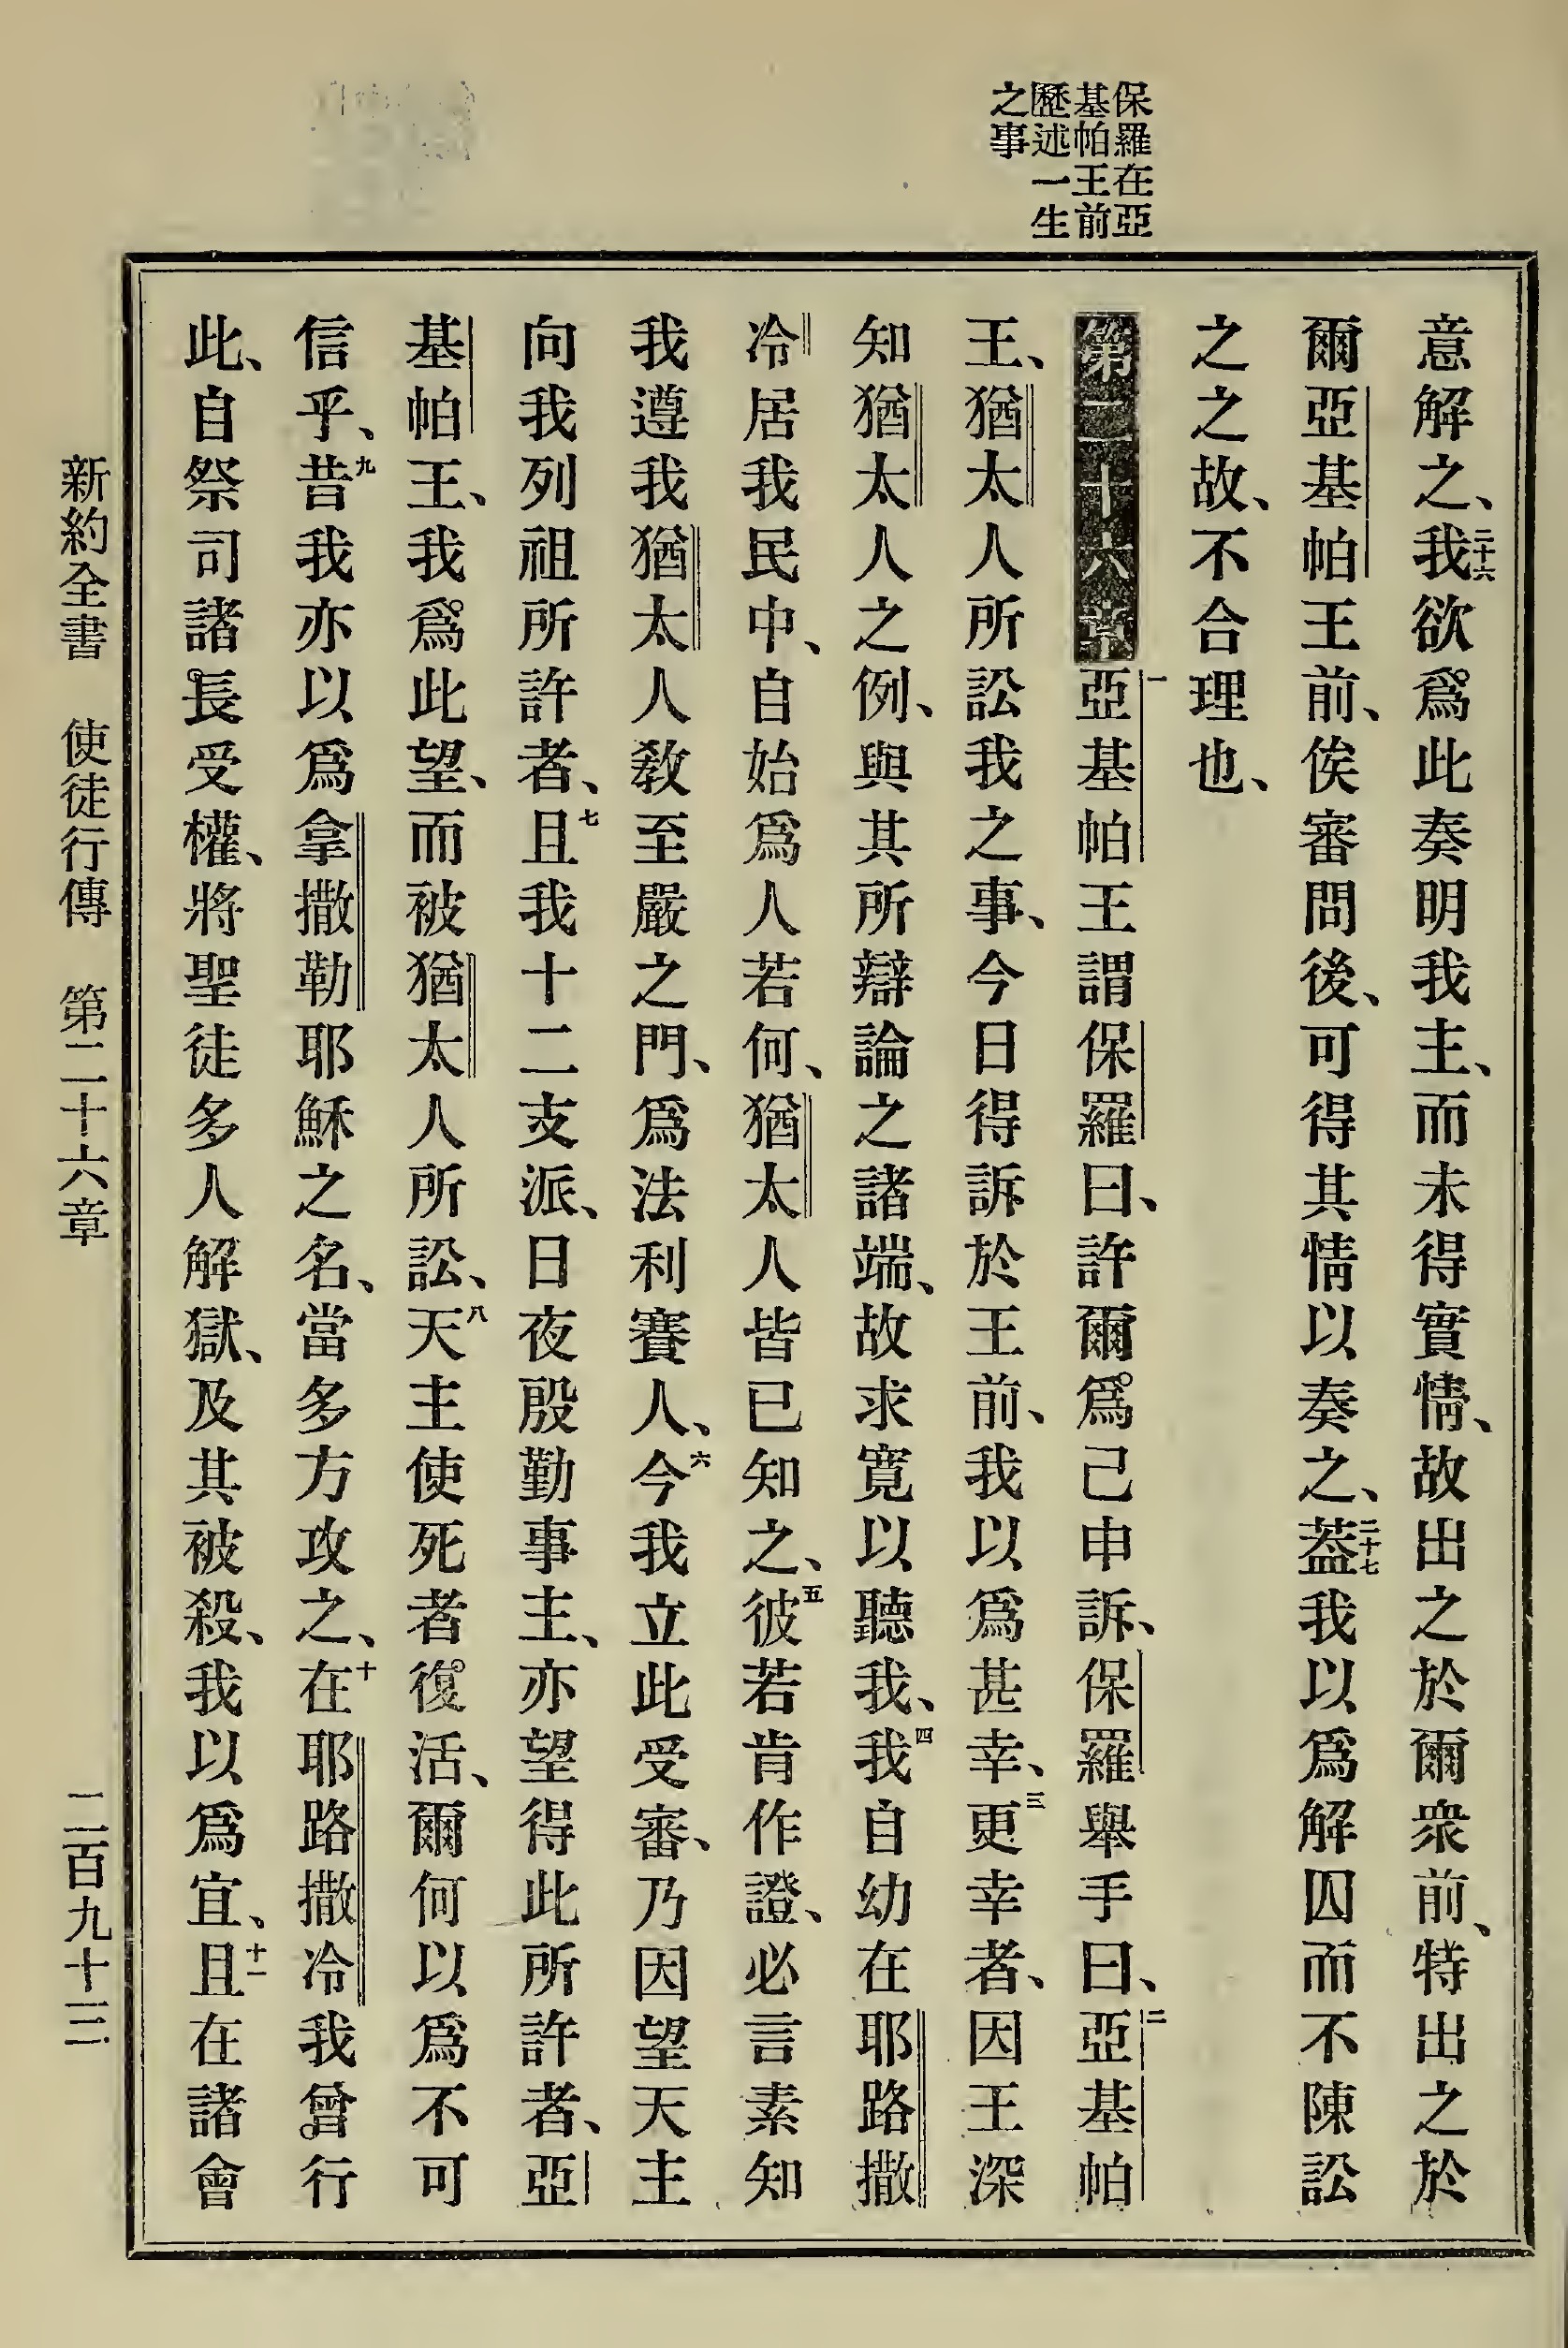 保羅在亞
基帕王前
歷述一生
之事
意解之、二十六我欲爲此奏明我主、而未得實情、故出之於爾衆前、特出之於
爾亞基帕王前、俟審問後、可得其情以奏之、二十七葢我以爲解囚而不陳訟
之之故、不合理也、
第二十六章 一亞基帕王謂保羅曰、許爾爲己申訴、保羅舉手曰、二亞基帕
王、猶太人所訟我之事、今日得訴於王前、我以爲甚幸、三更幸者、因王深
知猶太人之例、與其所辯論之諸端、故求寬以聽我、四我自幼在耶路撒
冷居我民中、自始爲人若何、猶太人皆已知之、五彼若肯作證、必言素知
我遵我猶太人敎至嚴之門、爲法利賽人、六今我立此受審、乃因望天主
向我列祖所許者、七且我十二支派、日夜殷勤事主、亦望得此所許者、亞
基帕王、我爲此望、而被猶太人所訟、八天主使死者復活、爾何以爲不可
信乎、九昔我亦以爲拿撒勒耶穌之名、當多方攻之、十在耶路撒冷我曾行
此、自祭司諸長受權、將聖徒多人解獄、及其被殺、我以爲宜、十一且在諸會
新約全書 使徒行傳 第二十六章 二百九十三